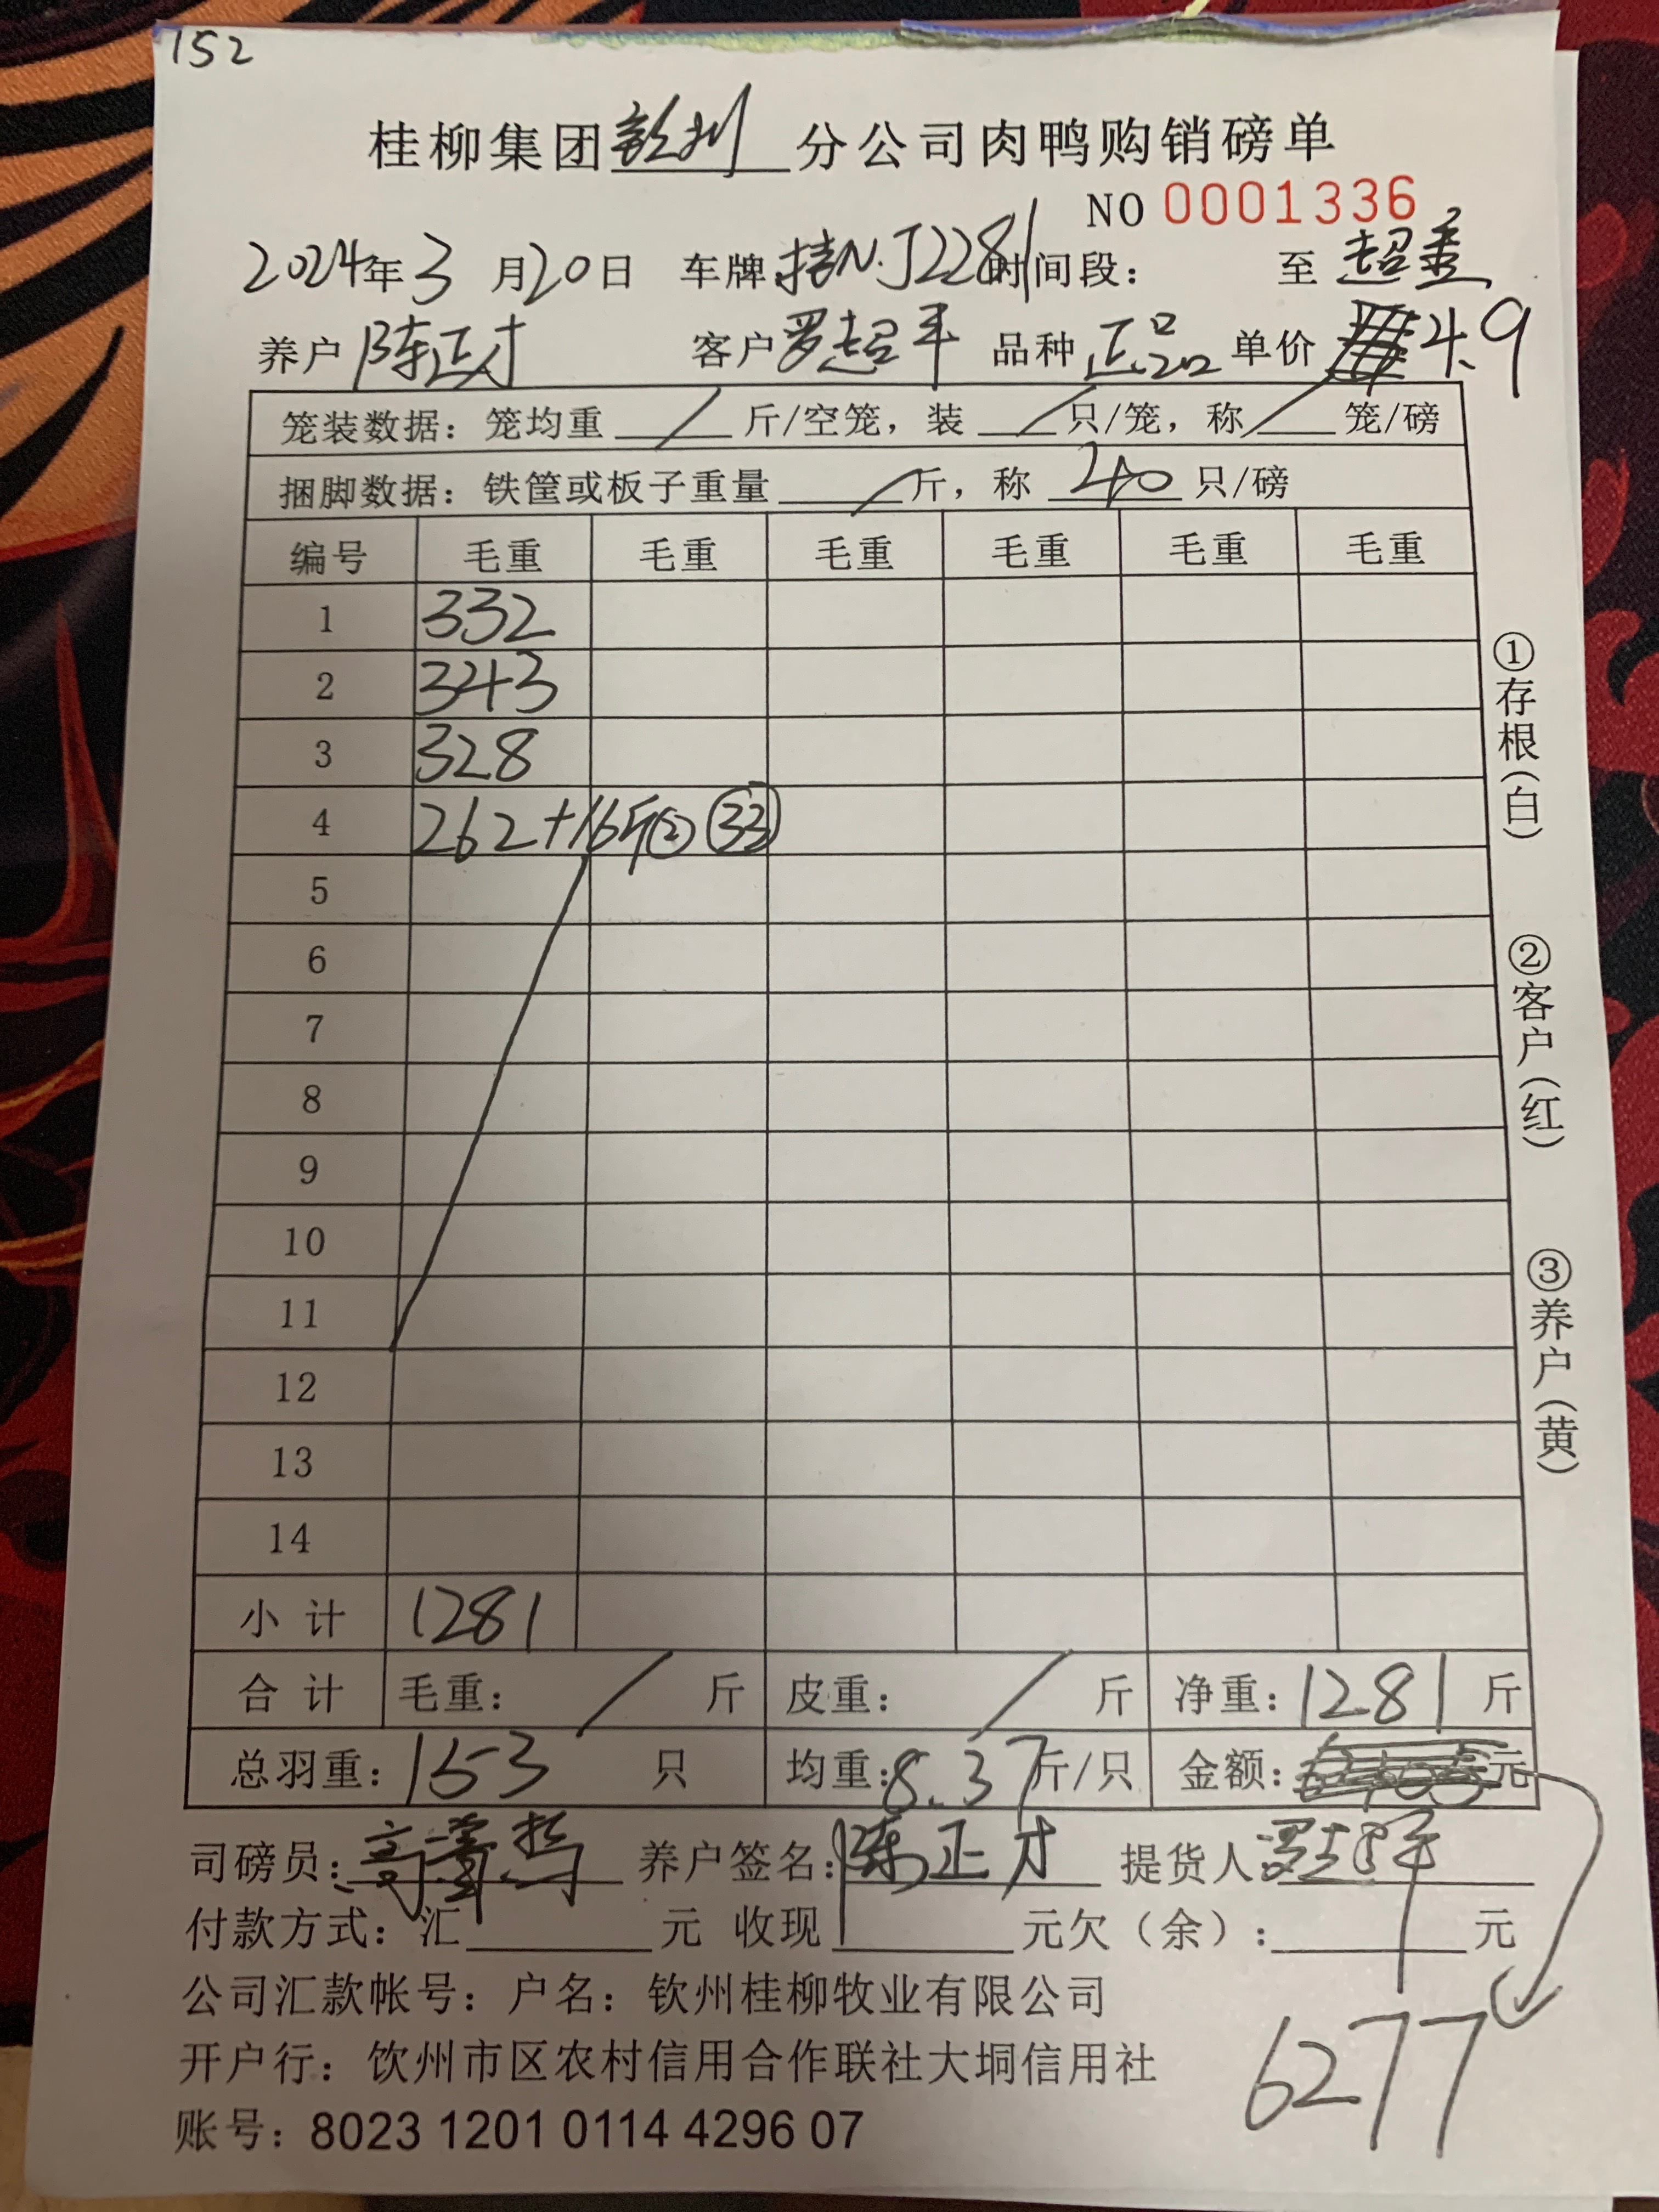 152
桂柳集团钦州分公司肉鸭购销磅单
NO 0001336
2024年3月20日 车牌桂N.J2281时间段: 至超重
养户陈正才 客户罗超平 品种正品 单价4.9
笼装数据: 笼均重/斤/空笼, 装/只/笼, 称/笼/磅
捆脚数据: 铁筐或板子重量/斤, 称40只/磅
编号 毛重 毛重 毛重 毛重 毛重 毛重
1 332
2 343
3 328
4 262+16斤② ㉝
5
6
7
8
9
10
11
12
13
14
小计 1281
合计 毛重: / 斤 皮重: / 斤 净重: 1281 斤
总羽重: 153 只 均重: 8.37斤/只 金额: 元
司磅员: 养户签名: 陈正才 提货人罗超平
付款方式: 汇 元 收现 元欠(余): 元
公司汇款帐号: 户名: 钦州桂柳牧业有限公司
6277
开户行: 饮州市区农村信用合作联社大垌信用社
账号: 8023 1201 0114 4296 07
①存根(白)
②客户(红)
③养户(黄)